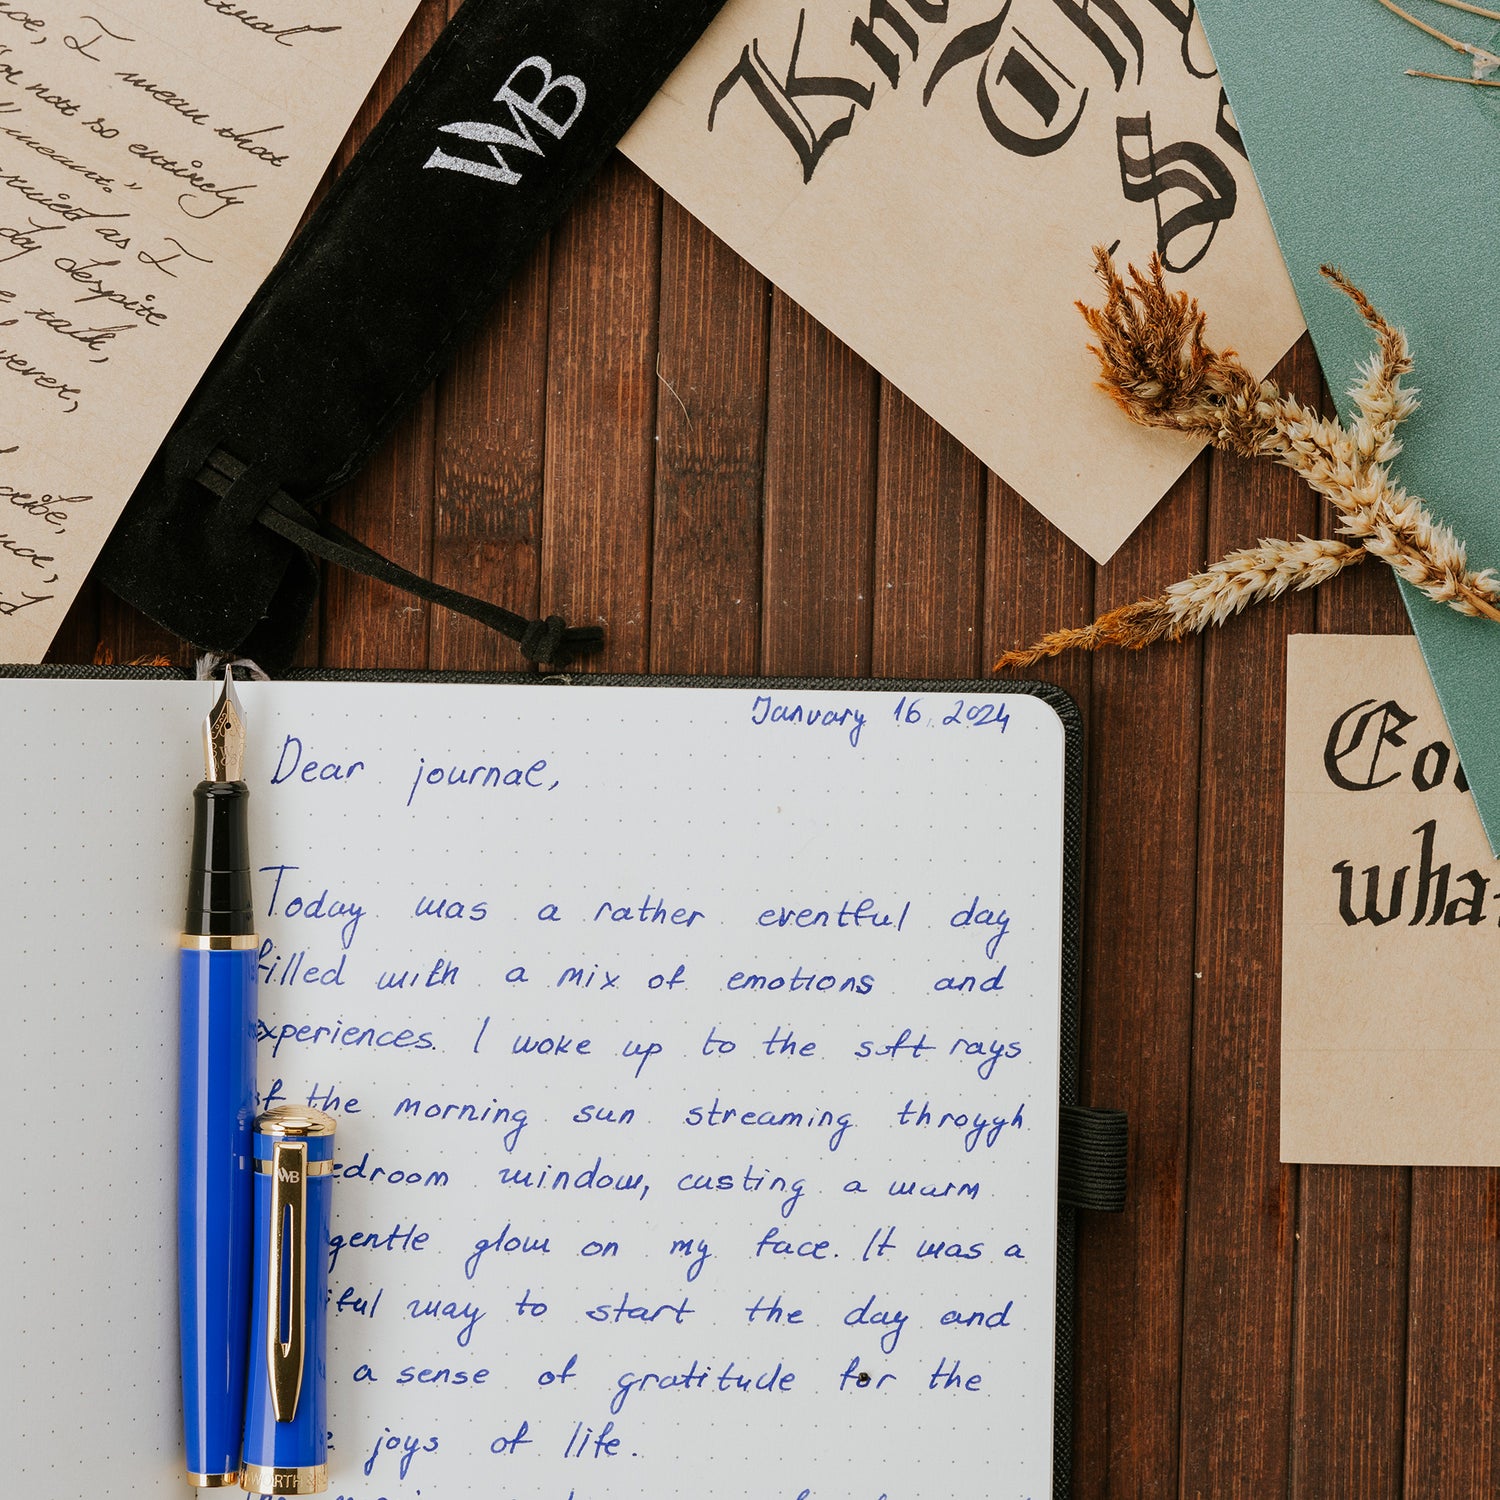 tual
I mean that
or not so entirely
meant."
as I
day despite
talk,
WB
Kn
Th
So
January 16, 2024
Dear journal,
Today was a rather eventful day
filled with a mix of emotions and
experiences. I woke up to the soft rays
of the morning sun streaming throygh
edroom window, casting a warm
gentle glow on my face. It was a
iful way to start the day and
a sense of gratitude for the
e joys of life.
WB
WORTH &
Cou
what